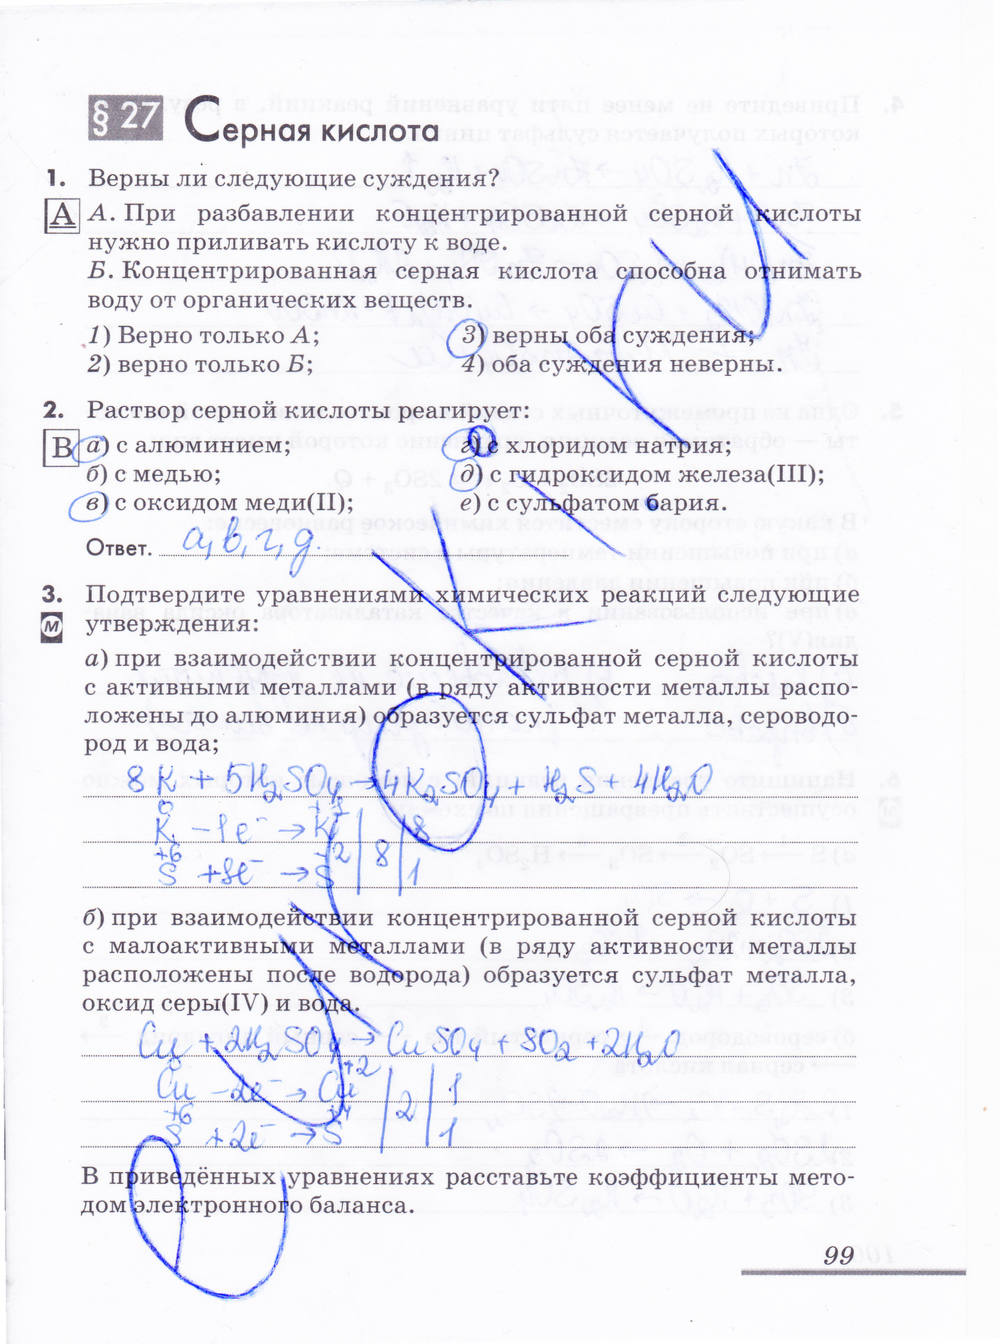 § 27 Серная кислота
1. Верны ли следующие суждения?
А А. При разбавлении концентрированной серной кислоты
нужно приливать кислоту к воде.
Б. Концентрированная серная кислота способна отнимать
воду от органических веществ.
1) Верно только А; 3) верны оба суждения;
2) верно только Б; 4) оба суждения неверны.
2. Раствор серной кислоты реагирует:
В а) с алюминием; г) с хлоридом натрия;
б) с медью; д) с гидроксидом железа(III);
в) с оксидом меди(II); е) с сульфатом бария.
Ответ. а, в, г, д.
3. Подтвердите уравнениями химических реакций следующие
М утверждения:
а) при взаимодействии концентрированной серной кислоты
с активными металлами (в ряду активности металлы распо-
ложены до алюминия) образуется сульфат металла, сероводо-
род и вода;
8K + 5H₂SO₄ → 4K₂SO₄ + H₂S + 4H₂O
K⁰ - 1e⁻ → K⁺¹ | 8 | 8
S⁺⁶ + 8e⁻ → S⁻² | 1
б) при взаимодействии концентрированной серной кислоты
с малоактивными металлами (в ряду активности металлы
расположены после водорода) образуется сульфат металла,
оксид серы(IV) и вода.
Cu + 2H₂SO₄ → CuSO₄ + SO₂ + 2H₂O
Cu⁰ - 2e⁻ → Cu⁺² | 2 | 1
S⁺⁶ + 2e⁻ → S⁺⁴ | 1
В приведённых уравнениях расставьте коэффициенты мето-
дом электронного баланса.
99